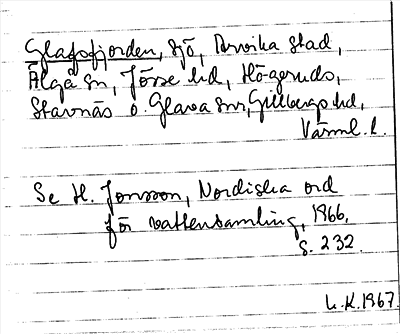 Glafsfjorden, sjö, Arvika stad,
Älgå sn, Jösse hd, Högeruds,
Stavnäs o. Glava snr, Gillbergs hd,
Värml. l.
Se H. Jonsson, Nordiska ord
för vattensamling, 1966,
s. 232.
L.K. 1967